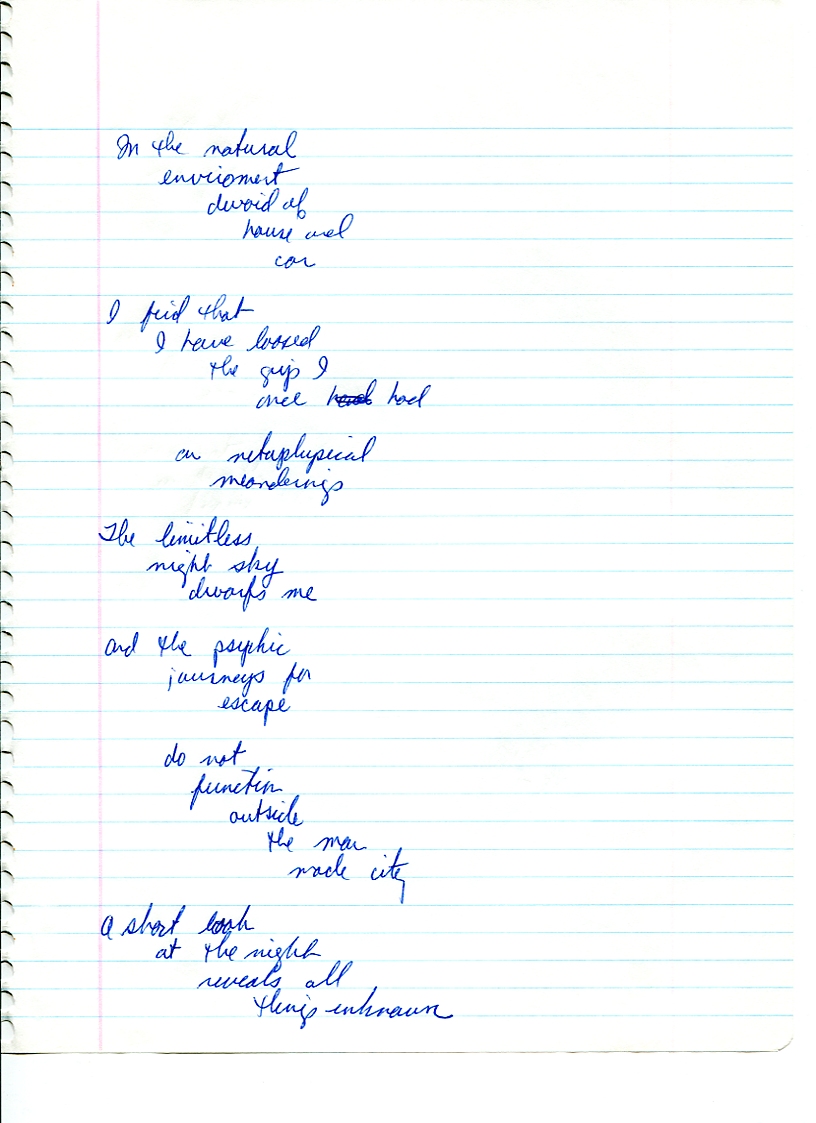 In the natural
enviroment
devoid of
house and
car
I find that
I have loosed
the grip I
once had
on metaphysical
meanderings
The limitless
night sky
dwarfs me
and the psychic
journeys for
escape
do not
function
outside
the man
made city
A short look
at the night
reveals all
things unknown